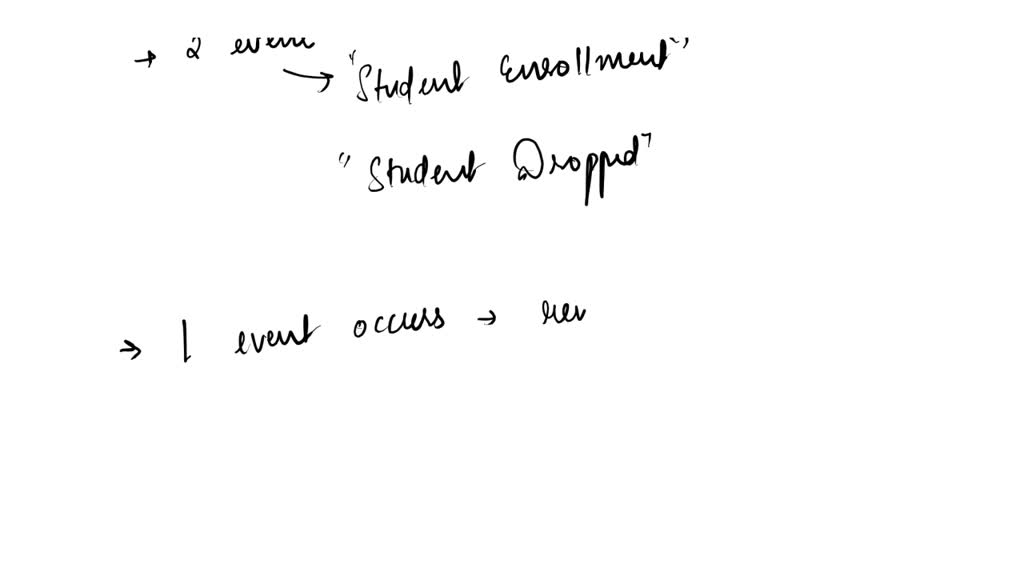 → 2 event
→ "Student Enrollment"
"Student Dropped"
→ 1 event occurs → rev